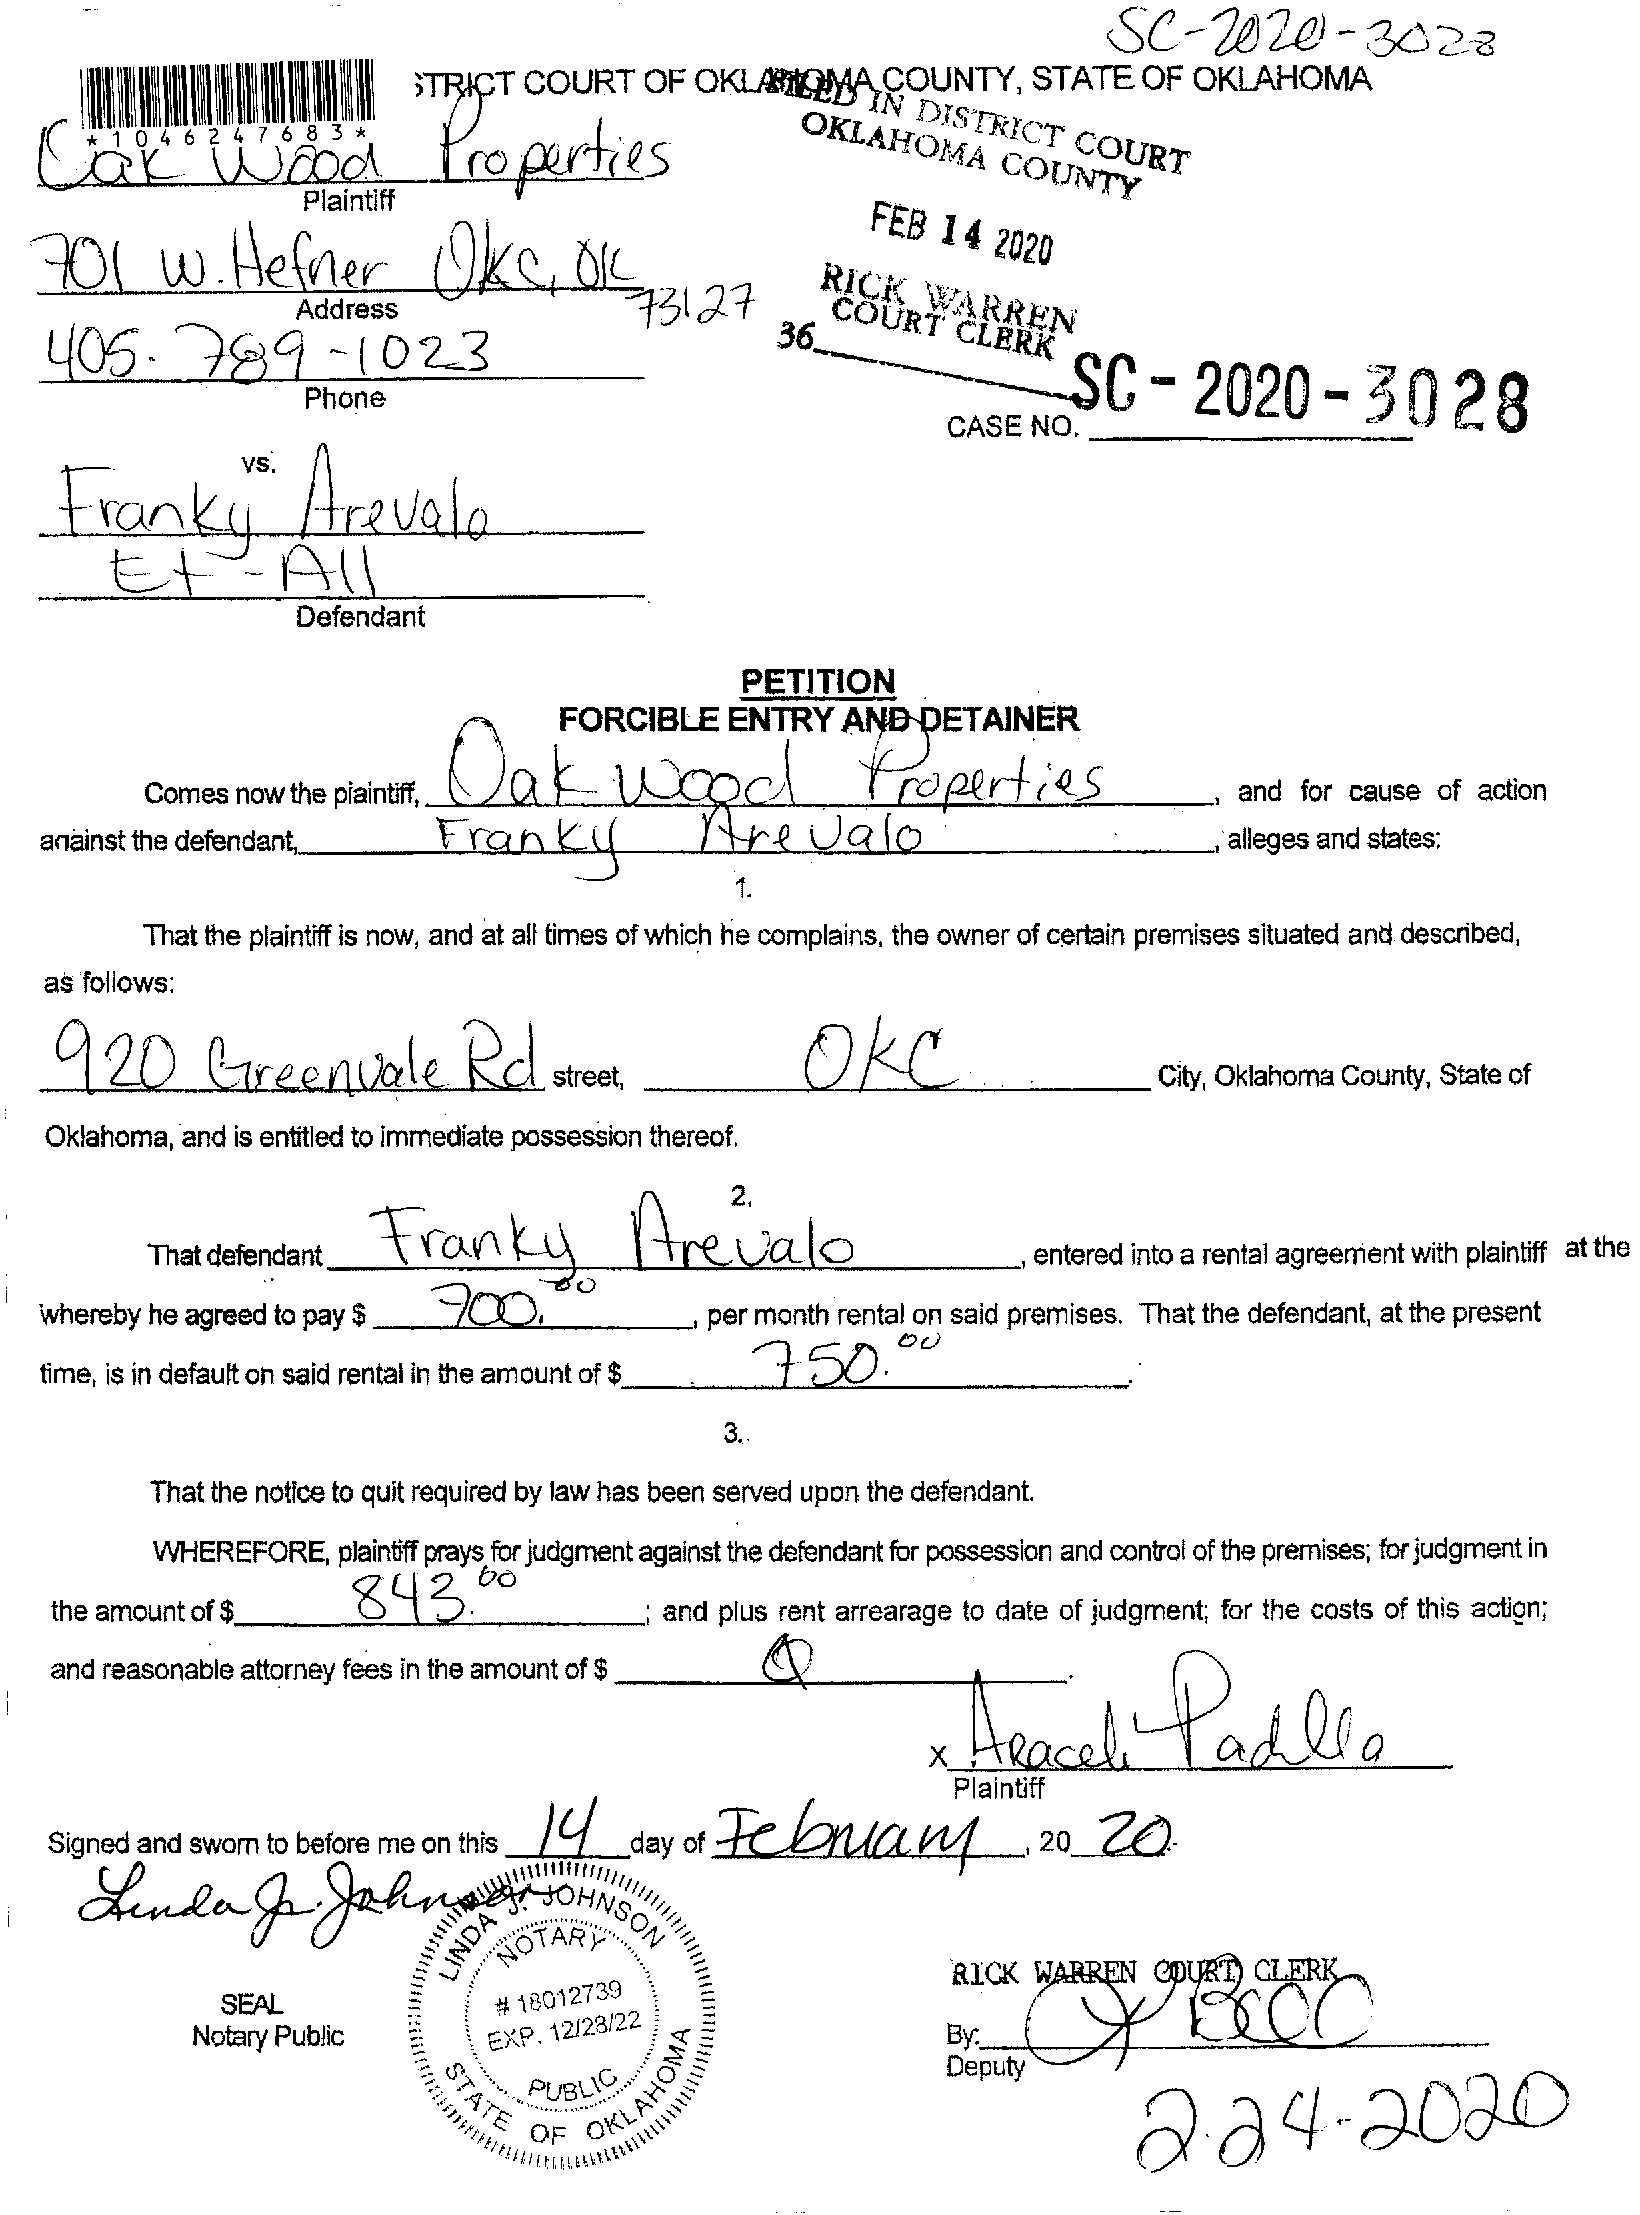 SC-2020-3028
STRICT COURT OF OKLAHOMA COUNTY, STATE OF OKLAHOMA
*1046247683*
FILED IN DISTRICT COURT
OKLAHOMA COUNTY
Oak Wood Properties
Plaintiff
FEB 14 2020
701 W. Hefner OKC, OK
73127
Address
RICK WARREN
COURT CLERK
36
405-789-1023
Phone
SC-2020-3028
CASE NO.
vs.
Franky Arevalo
Et-All
Defendant
PETITION
FORCIBLE ENTRY AND DETAINER
Comes now the plaintiff, Oak Wood Properties, and for cause of action
against the defendant, Franky Arevalo, alleges and states:
1.
That the plaintiff is now, and at all times of which he complains, the owner of certain premises situated and described,
as follows:
920 Greenvale Rd street, OKC City, Oklahoma County, State of
Oklahoma, and is entitled to immediate possession thereof.
2.
That defendant Franky Arevalo, entered into a rental agreement with plaintiff at the
whereby he agreed to pay $ 700.00, per month rental on said premises. That the defendant, at the present
time, is in default on said rental in the amount of $ 750.00.
3.
That the notice to quit required by law has been served upon the defendant.
WHEREFORE, plaintiff prays for judgment against the defendant for possession and control of the premises; for judgment in
the amount of $ 843.00; and plus rent arrearage to date of judgment; for the costs of this action;
and reasonable attorney fees in the amount of $
x Araceli Padilla
Plaintiff
Signed and sworn to before me on this 14 day of February, 20 20.
Linda J. Johnson
LINDA J. JOHNSON
NOTARY
# 18012739
EXP. 12/28/22
PUBLIC
STATE OF OKLAHOMA
SEAL
Notary Public
RICK WARREN COURT CLERK
By:
Deputy
2-24-2020